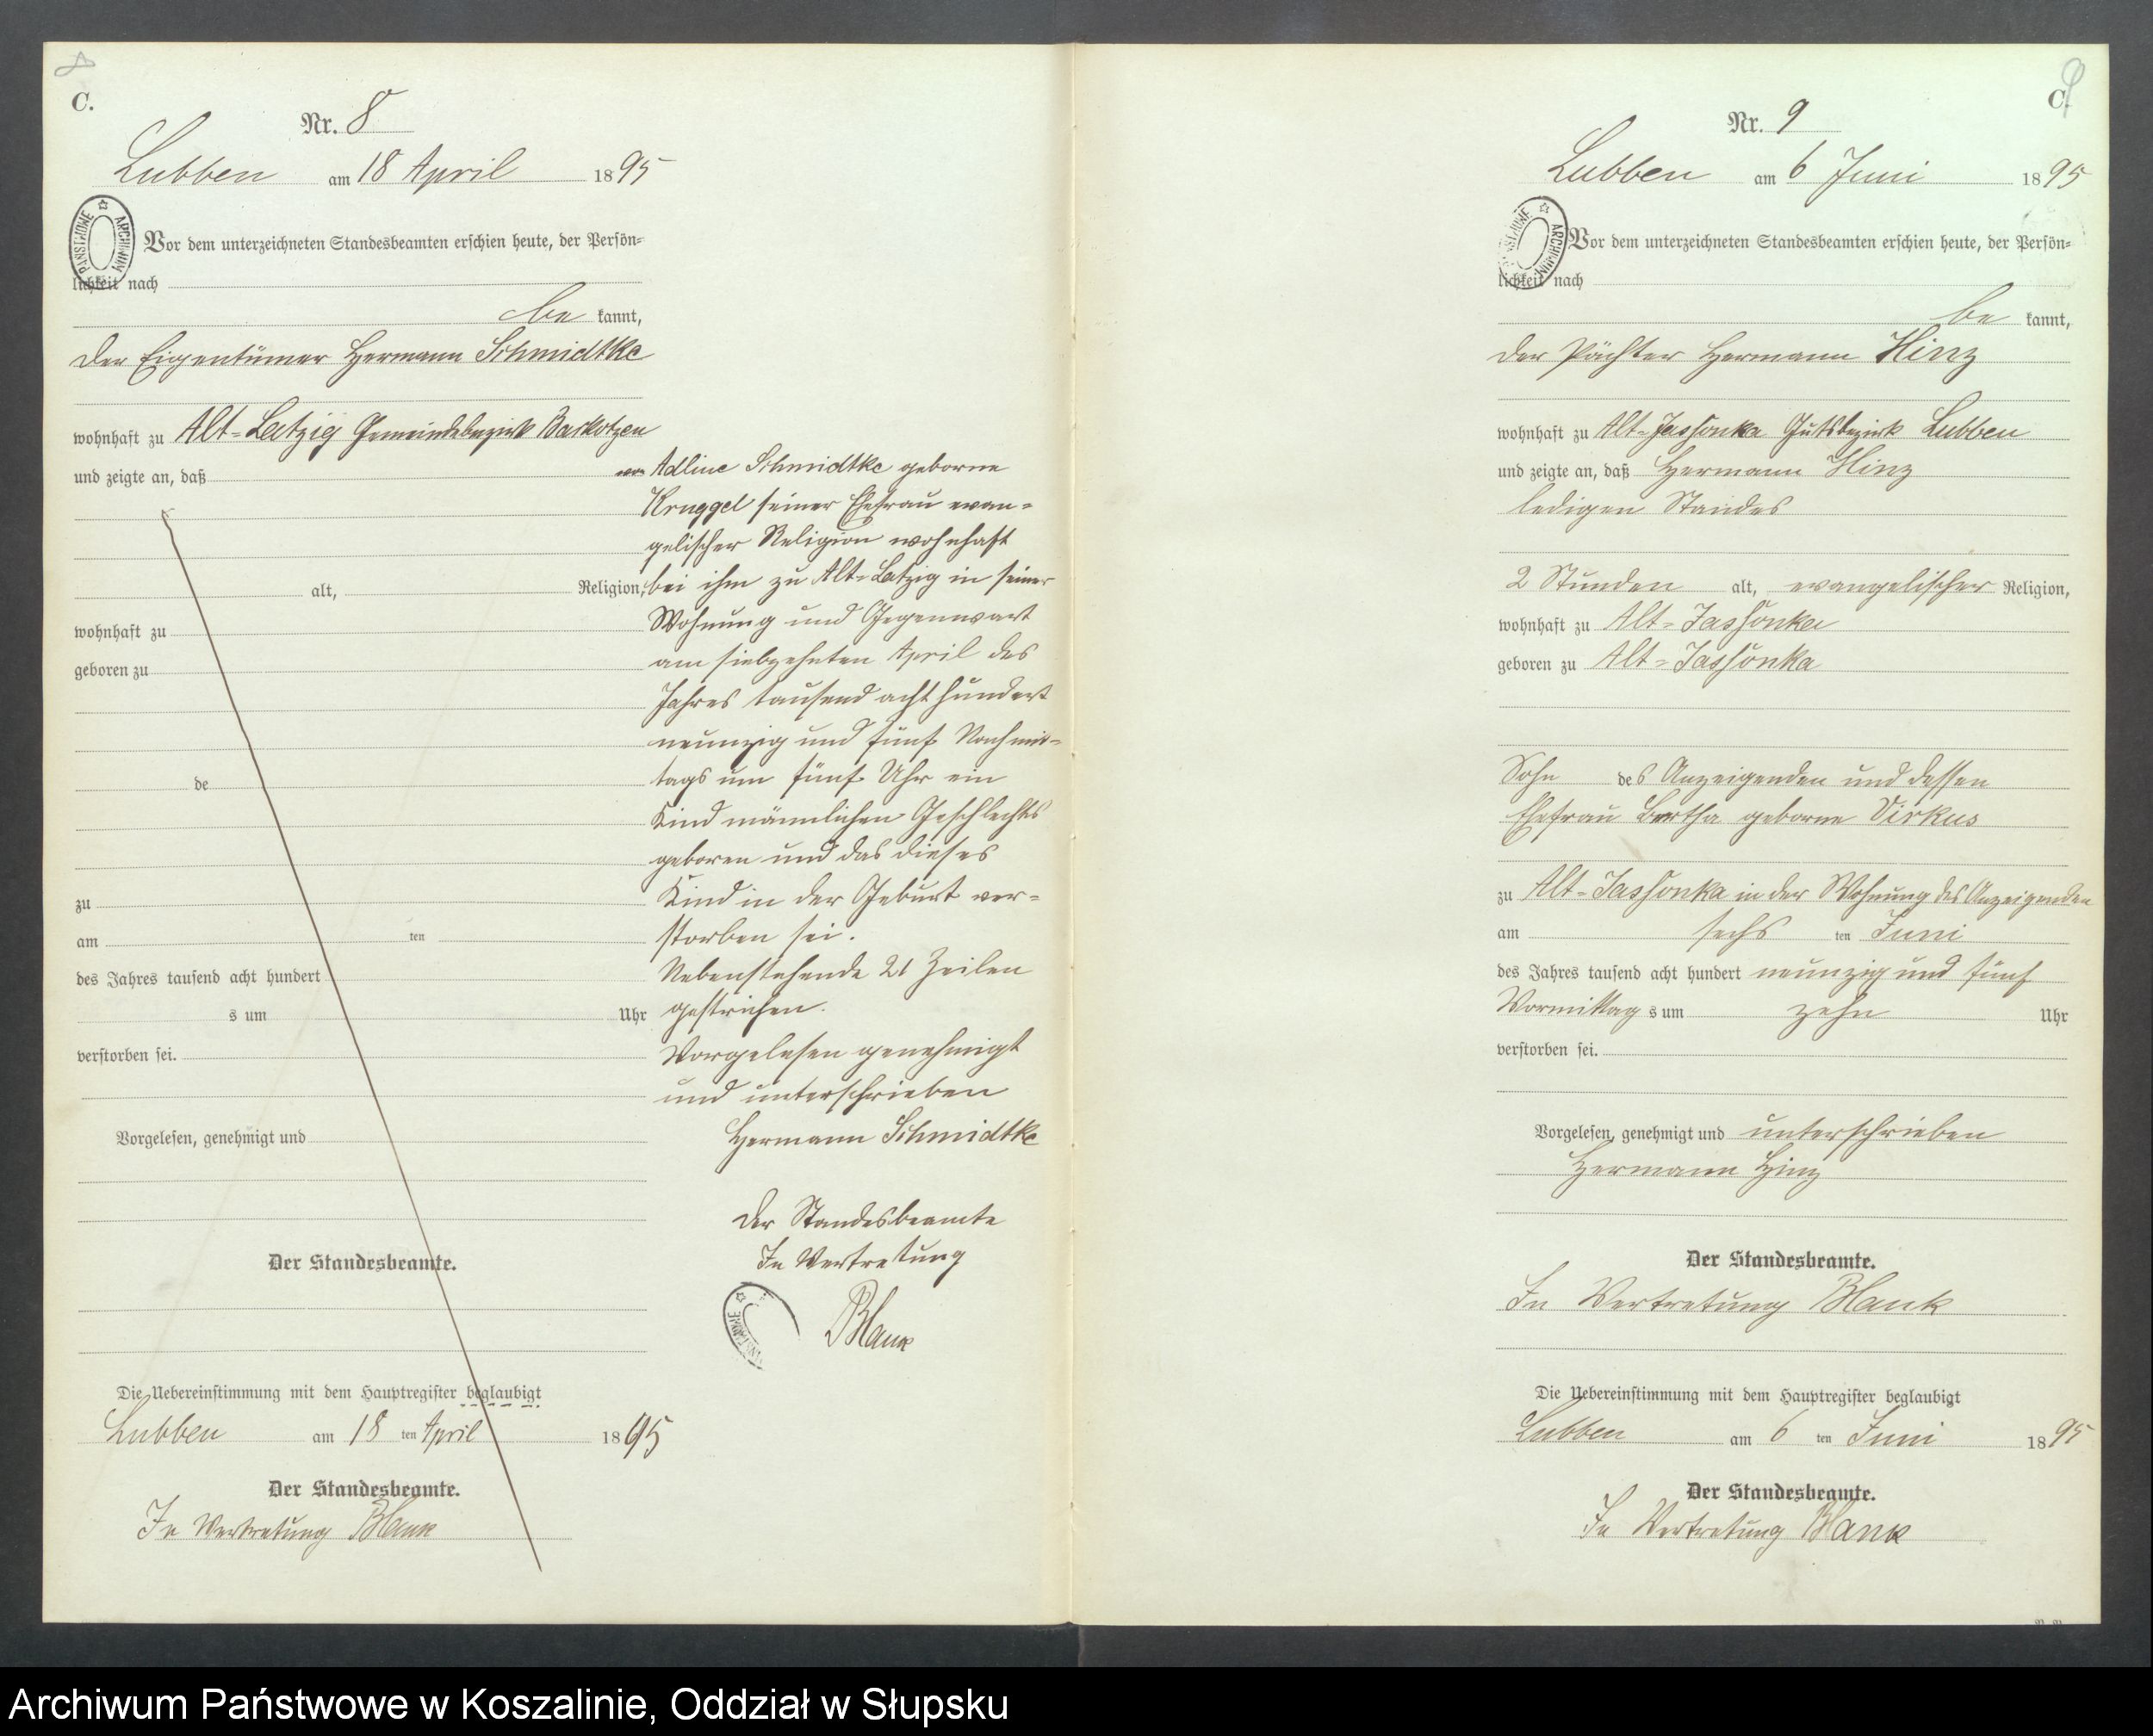 8
C.
Nr. 8
Lubben am 18 April 1895
Vor dem unterzeichneten Standesbeamten erschien heute, der Persön=
lichkeit nach
be kannt,
der Eigentümer Hermann Schmidtke
wohnhaft zu Alt-Latzig Gemeindebezirk Barkotzen
und zeigte an, daß von Adline Schmidtke geborne
Kruggel seiner Ehefrau evan=
gelischer Religion wohnhaft
alt, Religion, bei ihm zu Alt-Latzig in seiner
wohnhaft zu Wohnung und Gegenwart
geboren zu am siebzehnten April des
Jahres tausend acht hundert
neunzig und fünf Nachmit=
de tags um fünf Uhr ein
Kind männlichen Geschlechts
geboren und das dieses
zu Kind in der Geburt ver=
am ten storben sei.
des Jahres tausend acht hundert Nebenstehende 21 Zeilen
s um Uhr gestrichen.
verstorben sei. Vorgelesen genehmigt
und unterschrieben
Vorgelesen, genehmigt und Hermann Schmidtke
der Standesbeamte
Der Standesbeamte. In Vertretung
Blank
Die Uebereinstimmung mit dem Hauptregister beglaubigt
Lubben am 18 ten April 1895
Der Standesbeamte.
In Vertretung Blank
9
C.
Nr. 9
Lubben am 6 Juni 1895
Vor dem unterzeichneten Standesbeamten erschien heute, der Persön=
lichkeit nach
be kannt,
der Pächter Hermann Hinz
wohnhaft zu Alt-Jassonka Gutsbezirk Lubben
und zeigte an, daß Hermann Hinz
ledigen Standes
2 Stunden alt, evangelischer Religion,
wohnhaft zu Alt-Jassonka
geboren zu Alt-Jassonka
Sohn des Anzeigenden und dessen
Ehefrau Bertha geborne Virkus
zu Alt-Jassonka in der Wohnung des Anzeigenden
am sechs ten Juni
des Jahres tausend acht hundert neunzig und fünf
Vormittag s um zehn Uhr
verstorben sei.
Vorgelesen, genehmigt und unterschrieben
Hermann Hinz
Der Standesbeamte.
In Vertretung Blank
Die Uebereinstimmung mit dem Hauptregister beglaubigt
Lubben am 6 ten Juni 1895
Der Standesbeamte.
In Vertretung Blank
Archiwum Państwowe w Koszalinie, Oddział w Słupsku